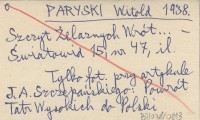 PARYSKI Witold 1938.
Szczyt Żelaznych Wrót... –
Światowid 15, nr 47, il
Tylko fot. przy artykule
J.A. Szczepańskiego: Powrót
Tatr Wysokich do Polski